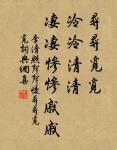 尋尋覓覓
冷冷清清
淒淒慘慘戚戚
李清照聲聲慢尋尋覓
覓詞典網集